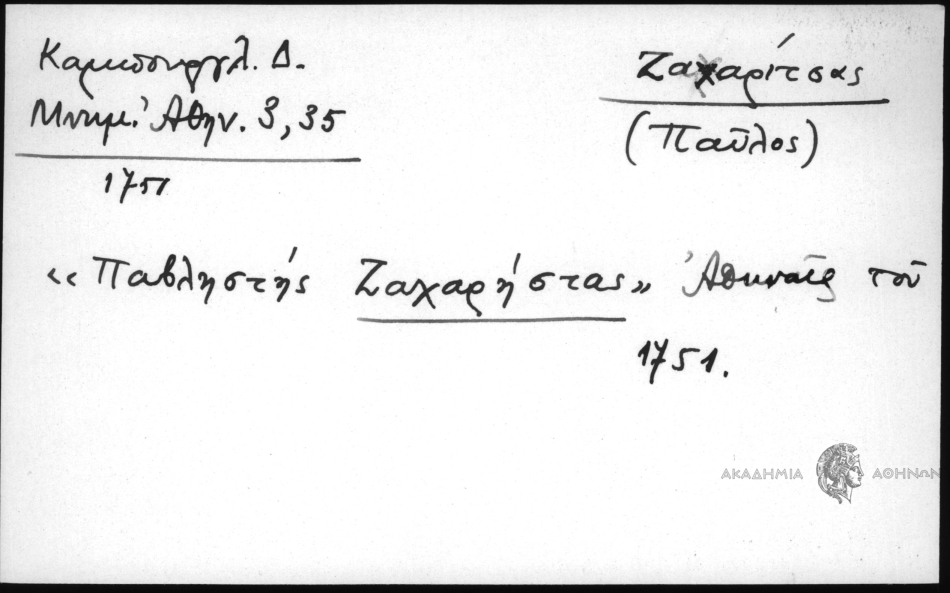 Καμπουργλ. Δ.
Μνημ. Ἀθην. 3, 35
1751
Ζαχαρίτσας
(Παῦλος)
«Παβληστής Ζαχαρήστας» Ἀθηναῖος τοῦ
1751.
ΑΚΑΔΗΜΙΑ ΑΘΗΝΩΝ